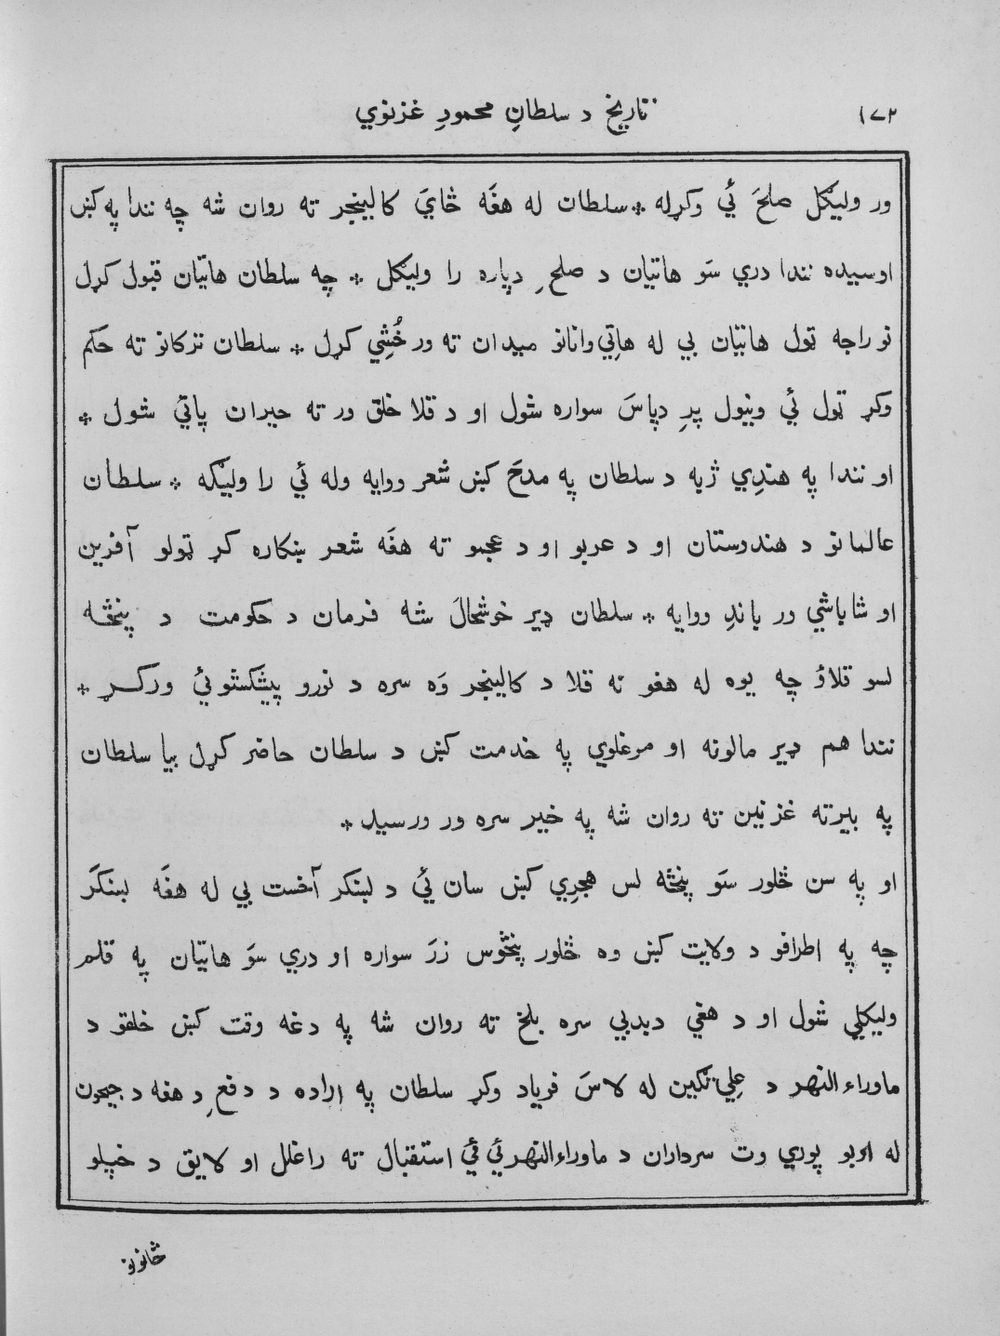 ١٧٢ تاريخ د سلطانِ محمودِ غزنوي
ور وليګل صلحَ ئَي وکړله * سلطان له هغَه ځايَ کالينجر ته روان شه چه نندا په کښ
اوسيده نندا دري سَو هاتيان د صلحِ دپاره را وليګل * چه سلطان هاتيان قبول کړل
نو راجه ټول هاتيان بي له هاتِي وانانو ميدان ته ور خُشِي کړل * سلطان ترکانو ته حکم
وکړ ټول ئَي ونيول پرِ دپاسَ سواره شول او د قلا خلق ور ته حيران پاتي شول *
او نندا په هندِي ژبه د سلطان په مدحَ کښ شعر ووايه وله ئَي را وليګه * سلطان
عالمانو د هندوستان او د عربو او د عجمو ته هغَه شعر ښکاره کړ ټولو آفرين
او شاباشي ور باندِ ووايه * سلطان ډير خوشحالَ شه فرمان د حکومت د پنځه
لسو قلاؤ چه يوه له هغو نه قلا د کالينجر وَه سره د نورو پيشکشو ئَي ورکړ *
نندا هم ډير مالونه او مرغلري په خدمت کښ د سلطان حاضر کړل بيا سلطان
په بيرته غزنين ته روان شه په خير سره ور ورسيد *
او په سن څلور سَو پنځه لس هجرِي کښ سان ئَي د لښکر آخست بي له هغَه لښکرَ
چه په اطرافو د ولايت کښ وه څلور پنځوس زرَ سواره او دري سَو هاتيان په قلم
وليکلي شول او د هغي دبدبي سره بلخ ته روان شه په دغه وقت کښ خلقو د
ماوراء النهر د علِي تکين له لاسَ فرياد وکړ سلطان په اراده د دفعِ د هغه د جيحون
له اوبو پوري وت سرداران د ماوراءالنهر ئَي ئَي استقبال ته راغلل او لايق د خپلو
ځانونو